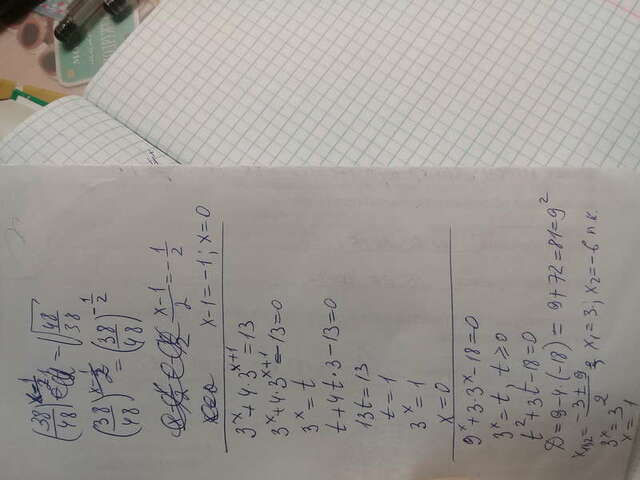 (38/48)^(x-1)/2 = √(48/38)
(38/48)^(x-1)/2 = (38/48)^-1/2
(x-1)/2 = -1/2
x-1=-1; x=0
3^x+4·3^x+1=13
3^x+4·3^x+1-13=0
3^x=t
t+4t·3-13=0
13t=13
t=1
3^x=1
x=0
9^x+3·3^x-18=0
3^x=t t≥0
t²+3t-18=0
D=9-4(-18)=9+72=81=9²
x1/2=(-3±9)/2 x1=3; x2=-6 п.к.
3^x=3
x=1